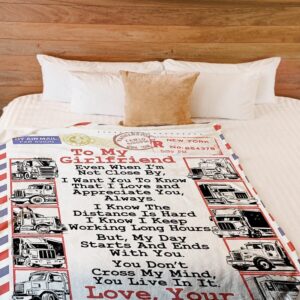 BY AIR MAIL
PAR AVION
NEW YORK
To My
Girlfriend
Even When I'm
Not Close By,
I Want You To Know
That I Love and
Appreciate You,
Always.
I Know The
Distance Is Hard
I Know I Keep
Working Long Hours.
But, My Day
Starts And Ends
With You.
You Don't
Cross My Mind,
You Live In It.
Love, Your